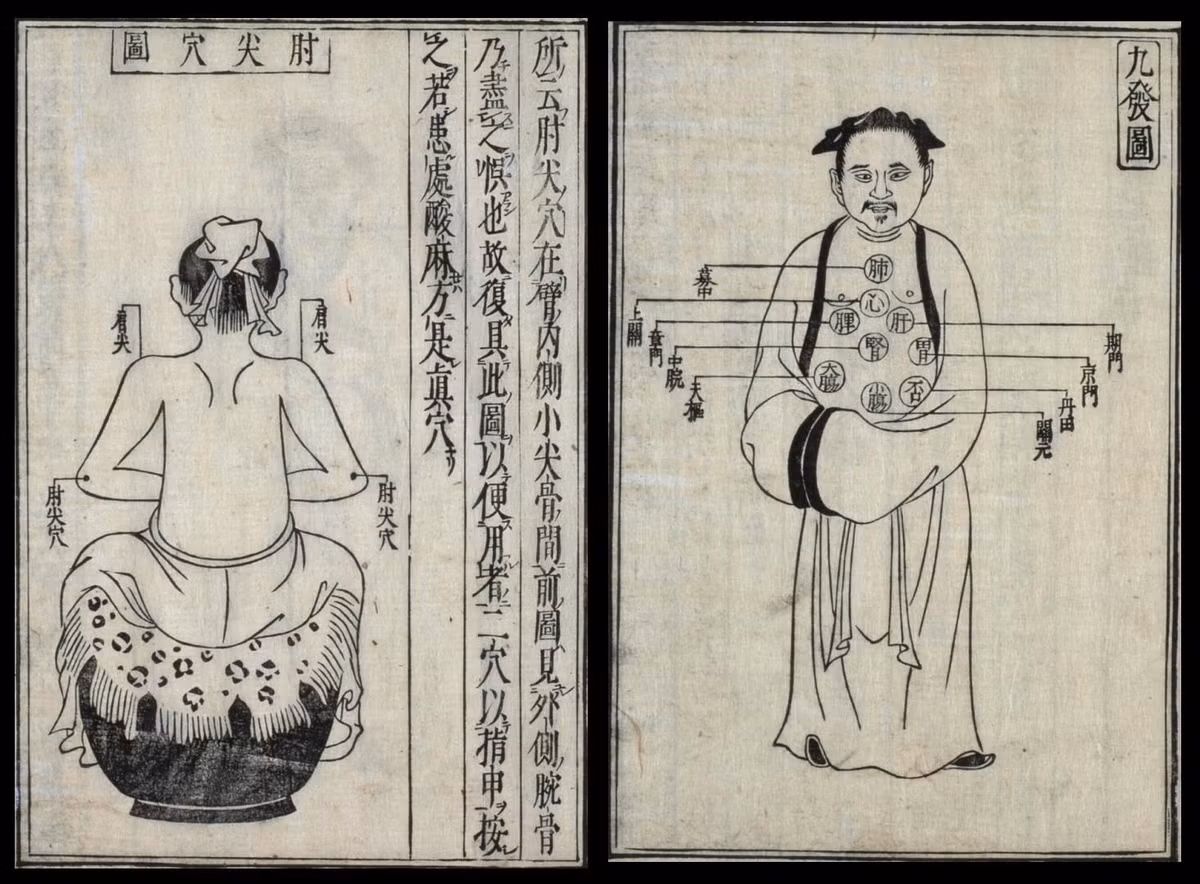 九發圖
肺
心
肝
脾
腎
胃
大腸
小腸
否
期門
京門
丹田
關元
上關
章門
中脘
天樞
所云肘尖穴在臂内側小尖骨間前圖見外側腕骨
乃盡之悞也故復具此圖以便用者二穴以指申按
之若患處酸麻方是眞穴
肘尖穴圖
肩尖
肩尖
肘尖穴
肘尖穴